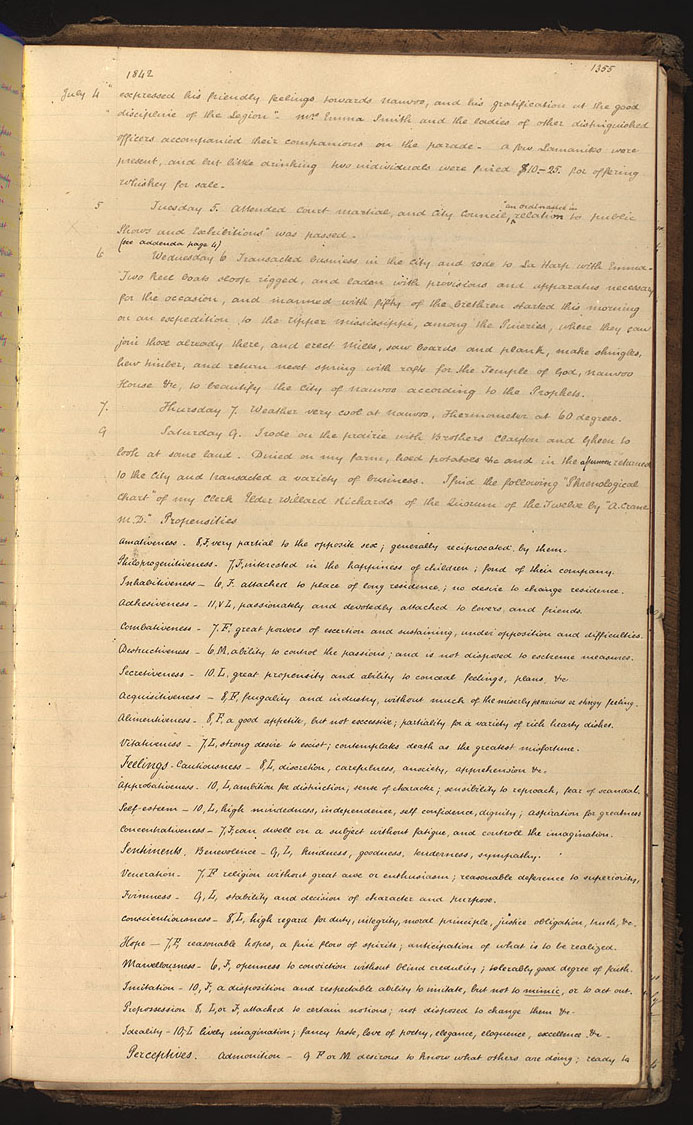 1842
1355
July 4 " expressed his friendly feelings towards Nauvoo, and his gratification at the good
" discipline of the Legion". Mrs Emma Smith and the ladies of other distinguished
officers accompanied their companions on the parade. A few Lamanites were
present, and but little drinking two individuals were fined $10-25. for offering
whiskey for sale.
"an ordinance in
5 Tuesday 5. Attended Court martial, and City Council, relation to public
Shows and Exhibitions" was passed.
(see addenda page 4)
6 Wednesday 6 Transacted business in the City and rode to La Harp with Emma
Two keel boats sloop rigged, and laden with provisions and apparatus necessary
for the occasion, and manned with fifty of the brethren started this morning
on an expedition to the upper Mississippi, among the Pineries, where they can
join those already there, and erect Mills, saw boards and plank, make shingles,
hew timber, and return next spring with rafts for the Temple of God, Nauvoo
House &c, to beautify the City of Nauvoo according to the Prophets.
7. Thursday 7. Weather very cool at Nauvoo, Thermometer at 60 degrees.
9 Saturday 9. I rode on the prairie with Brothers Clayton and Gheen to
look at some land. Dined on my farm, hoed potatoes &c and in the afternoon returned
to the City and transacted a variety of business. I find the following "Phrenological
Chart" of my Clerk Elder Willard Richards of the Quorum of the Twelve by "A. Crane
M.D." Propensities
Amativeness - 8, F, very partial to the opposite sex; generally reciprocated by them.
Philoprogenitiveness - 7, F, interested in the happiness of children; fond of their company.
Inhabitiveness - 6, F. attached to place of long residence; no desire to change residence.
Adhesiveness - 11, V L, passionately and devotedly attached to lovers, and friends.
Combativeness - 7. F, great powers of exertion and sustaining, under opposition and difficulties.
Destructiveness - 6. M, ability to control the passions; and is not disposed to extreme measures.
Secretiveness - 10, L, great propensity and ability to conceal feelings, plans, &c
Acquisitiveness - 8, F, frugality and industry, without much of the miserly penurious or stingy feeling.
Alimentiveness - 8, F. a good appetite, but not excessive; partiality for a variety of rich hearty dishes.
Vitativeness - 7, L, strong desire to exist; contemplates death as the greatest misfortune.
Feelings. Cautiousness - 8, L, discretion, carefulness, anxiety, apprehension &c.
Approbativeness. 10, L, ambition for distinction; sense of character; sensibility to reproach, fear of scandal.
Self-esteem - 10, L, high mindedness, independence, self confidence, dignity; aspiration for greatness
Concentrativeness - 7, F, can dwell on a subject without fatigue, and controll the imagination.
Sentiments. Benevolence - 9, L, kindness, goodness, tenderness, sympathy.
Veneration - 7, F religion without great awe or enthusiasm; reasonable deference to superiority,
Firmness - 9, L, stability and decision of character and purpose.
Conscientiousness - 8, L, high regard for duty, integrity, moral principle, justice obligation, truth, &c.
Hope - 7, F, reasonable hopes, a fine flow of spirits; anticipation of what is to be realized.
Marvellousness - 6, F, openness to conviction without blind credulity; tolerably good degree of faith.
Imitation - 10, F, a disposition and respectable ability to imitate, but not to mimic, or to act out.
Prepossession 8, L, or F, attached to certain notions; not disposed to change them &c.
Ideality - 10, L lively imagination; fancy taste, love of poetry, elegance, eloquence, excellence &c.
Perceptives. Admonition - 9 F or M desirous to know what others are doing; ready to